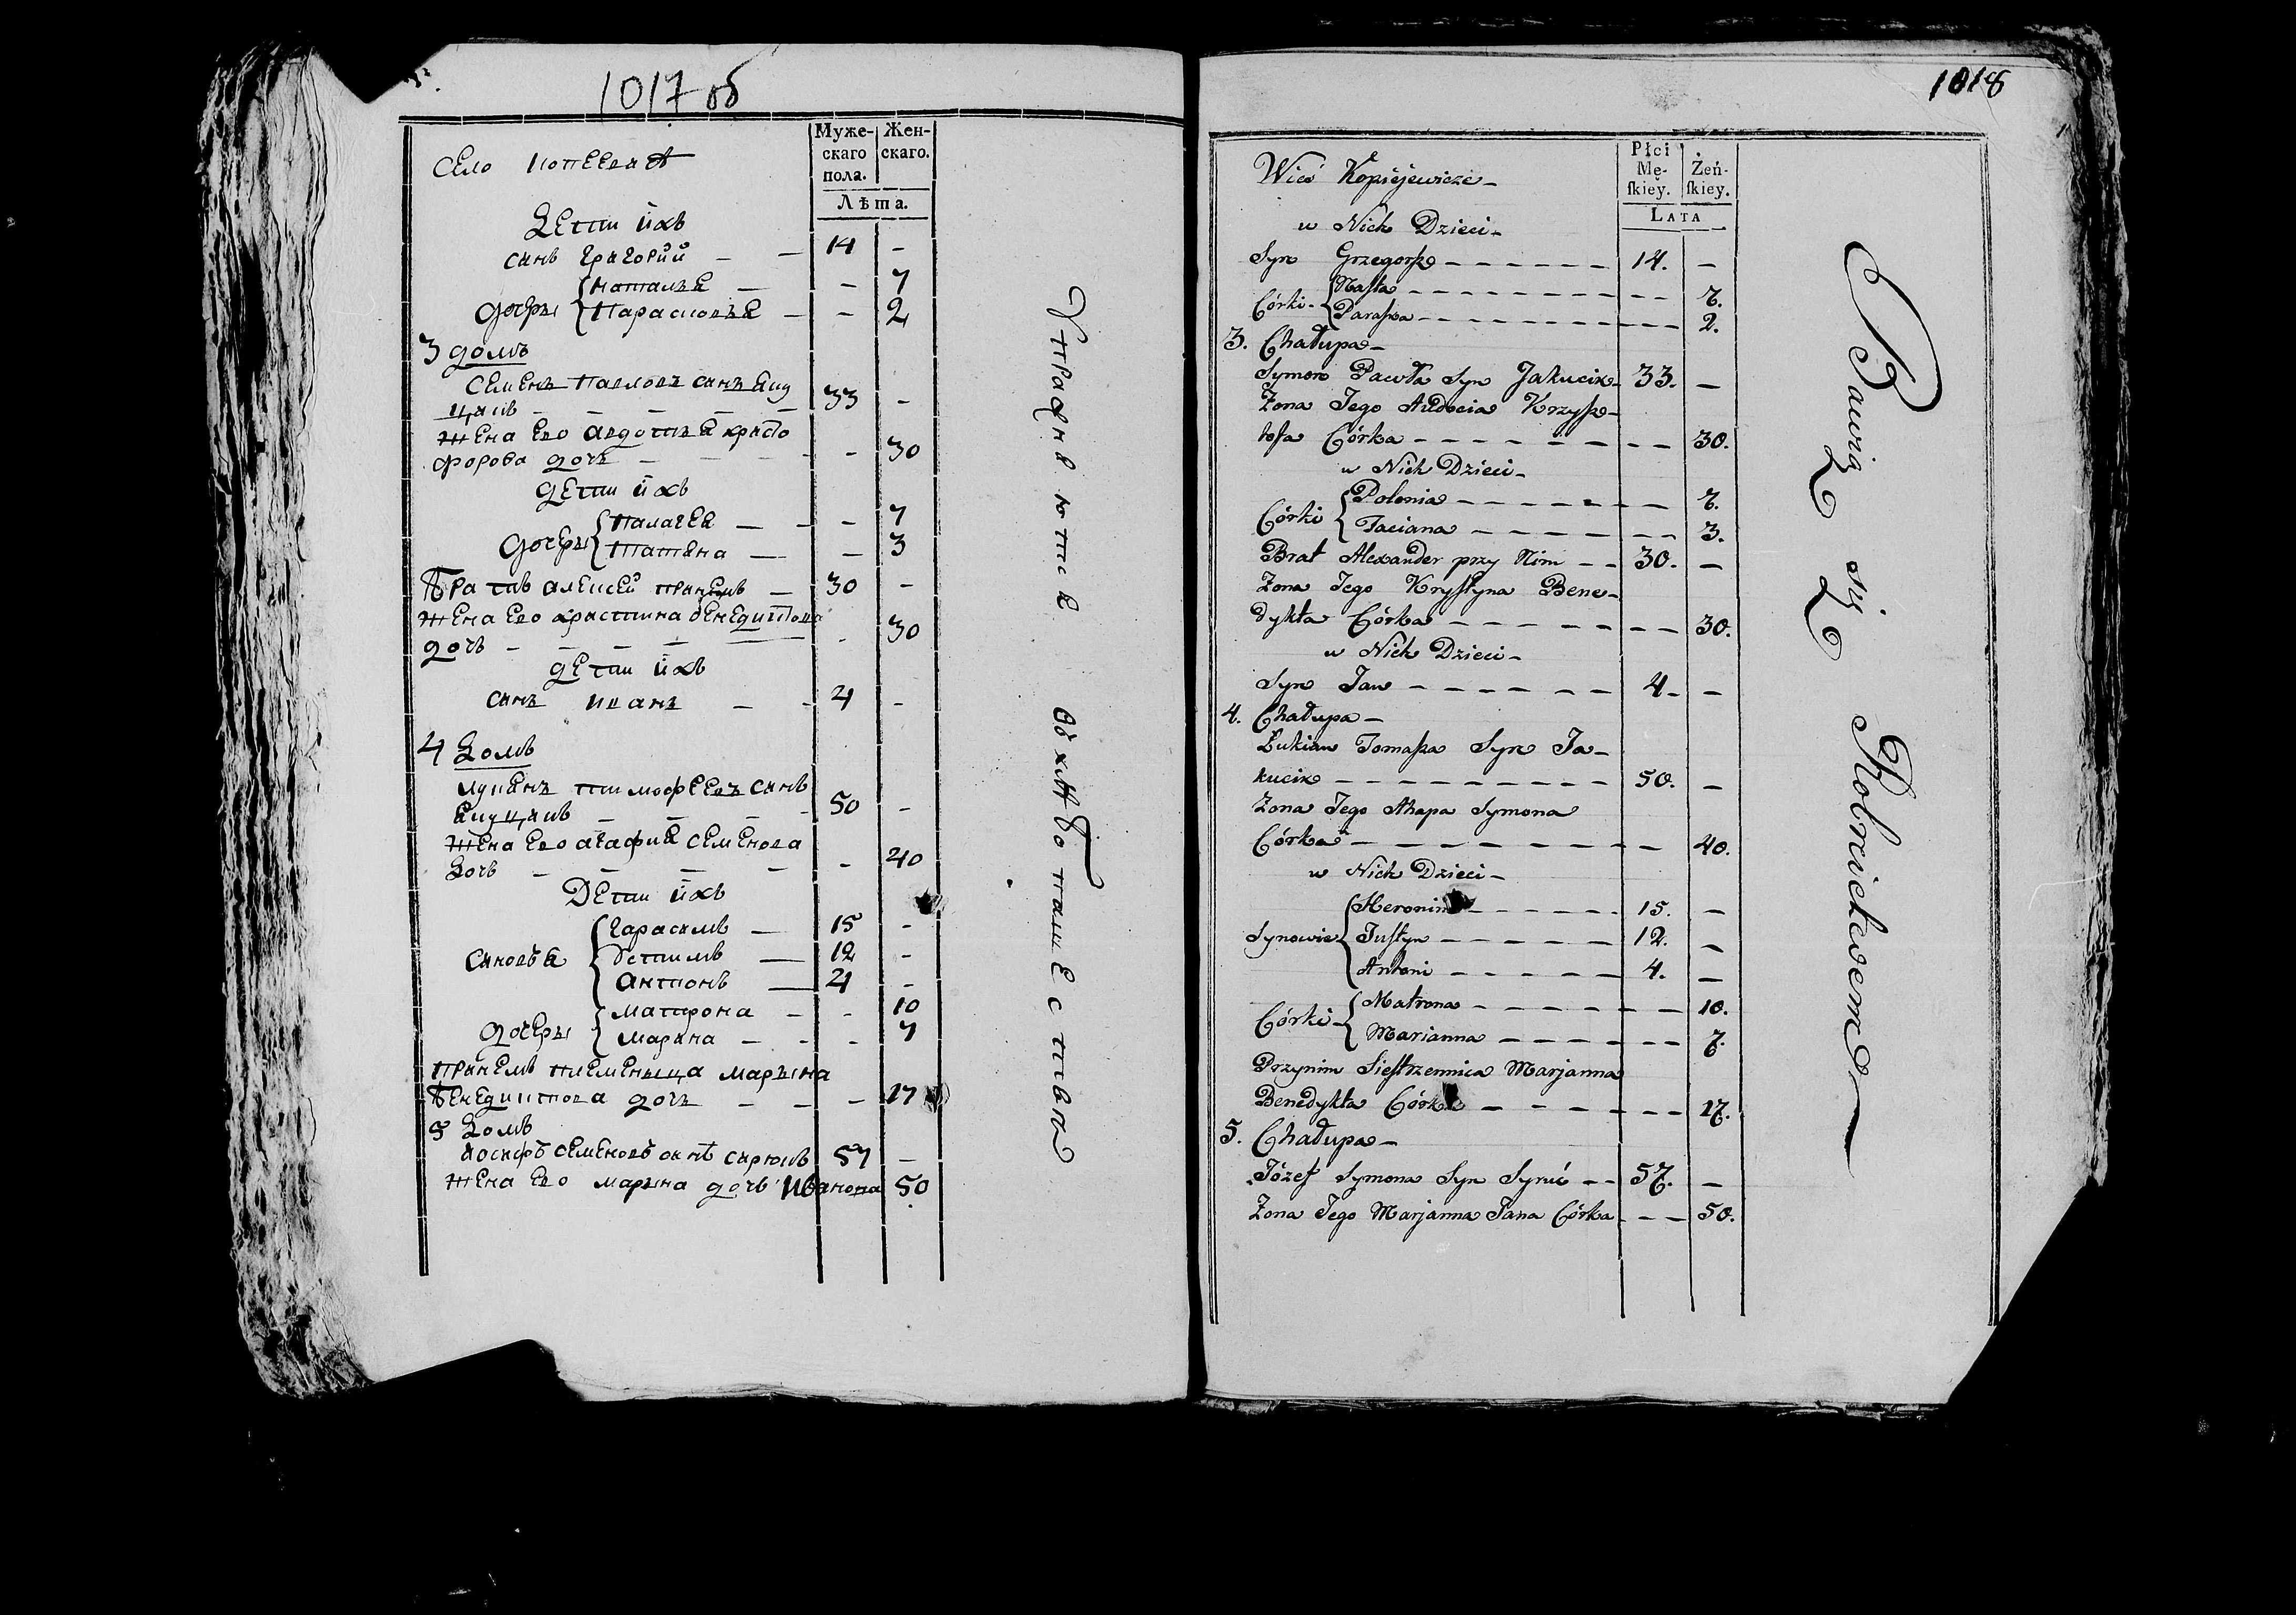 1017 об
Муже-
скаго
пола.
Жен-
скаго.
Лѣта.
Село Копеевичѣ
Дети ихъ
сынъ Григорий — — 14 -
дочеры { Наталья — - 7
Парасковья — - 2
3 домъ
Семенъ Павловъ сынъ Яку
цикъ — — — — — 33 -
жена ево Авдотья Кристо
форова дочь — — — - 30
дети ихъ
дочеры { Палагея — — - 7
Татяна — — 3
Братъ Алексей принемъ — 30 -
жена ево Христина Бенедиктова
дочь — — — — — - 30
дети ихъ
сынъ Иванъ — - 4 -
4 Домъ
Лукянъ Тимофеевъ сынъ
Якуцикъ — — — - 50 -
жена ево Агафия Семенова
дочь — — — — - 40
Дети ихъ
сыновья { Гарасимъ — 15 -
Устимъ — 12 -
Антонъ — 4 -
дочеры { Матрона — - 10
Марына — - - 7
принемъ племеныца Марьяна
Бенедиктова дочь — — — 17
5 Домъ
Иосифъ Семеновъ сынъ Сырюкъ 57 —
жена ево Марьяна дочь Иванова 50
Упражняютса в хлѣбопашествѣ
1018
Płci
Mę-
ſkiey.
Żeń-
ſkiey.
LATA
Wieś Kopiejewicze –
w Nich Dzieci –
Syn Grzegorz – – – – – – 14. –
Córki – { Nasta – – – – – – – – – 7.
Paraska – – – – – – – – – 2.
3. Chałupa –
Symon Pawła Syn Jakucik – 33. –
Żona Jego Audocia Krzysz –
tofa Córka – – – – – – – – 30.
w Nich Dzieci –
Córki { Polonia – – – – – – – 7.
Taciana – – – – – – – 3.
Brat Alexander przy Nim – – 30. –
Żona Jego Krystyna Bene –
dykta Córka – – – – – – – – 30.
w Nich Dzieci –
Syn Jan – – – – – – 4 – –
4. Chałupa –
Łukian Tomasza Syn Ja –
kucik – – – – – – – – – 50. –
Żona Jego Ahapa Symona
Córka – – – – – – – – – 40.
w Nich Dzieci –
Synowie { Heronim – – – – – 15. –
Justyn – – – – – 12. –
Antoni – – – – – 4. –
Córki – { Matrona – – – – – – – 10.
Marianna – – – – – – – 7.
Przynim Siestrzennica Marjanna
Benedykta Córka – – – – – – – 17.
5. Chałupa –
Józef Symona Syn Syruć – – 57. –
Żona Jego Marjanna Jana Córka – – – 50.
Bawią się Rolnictwem